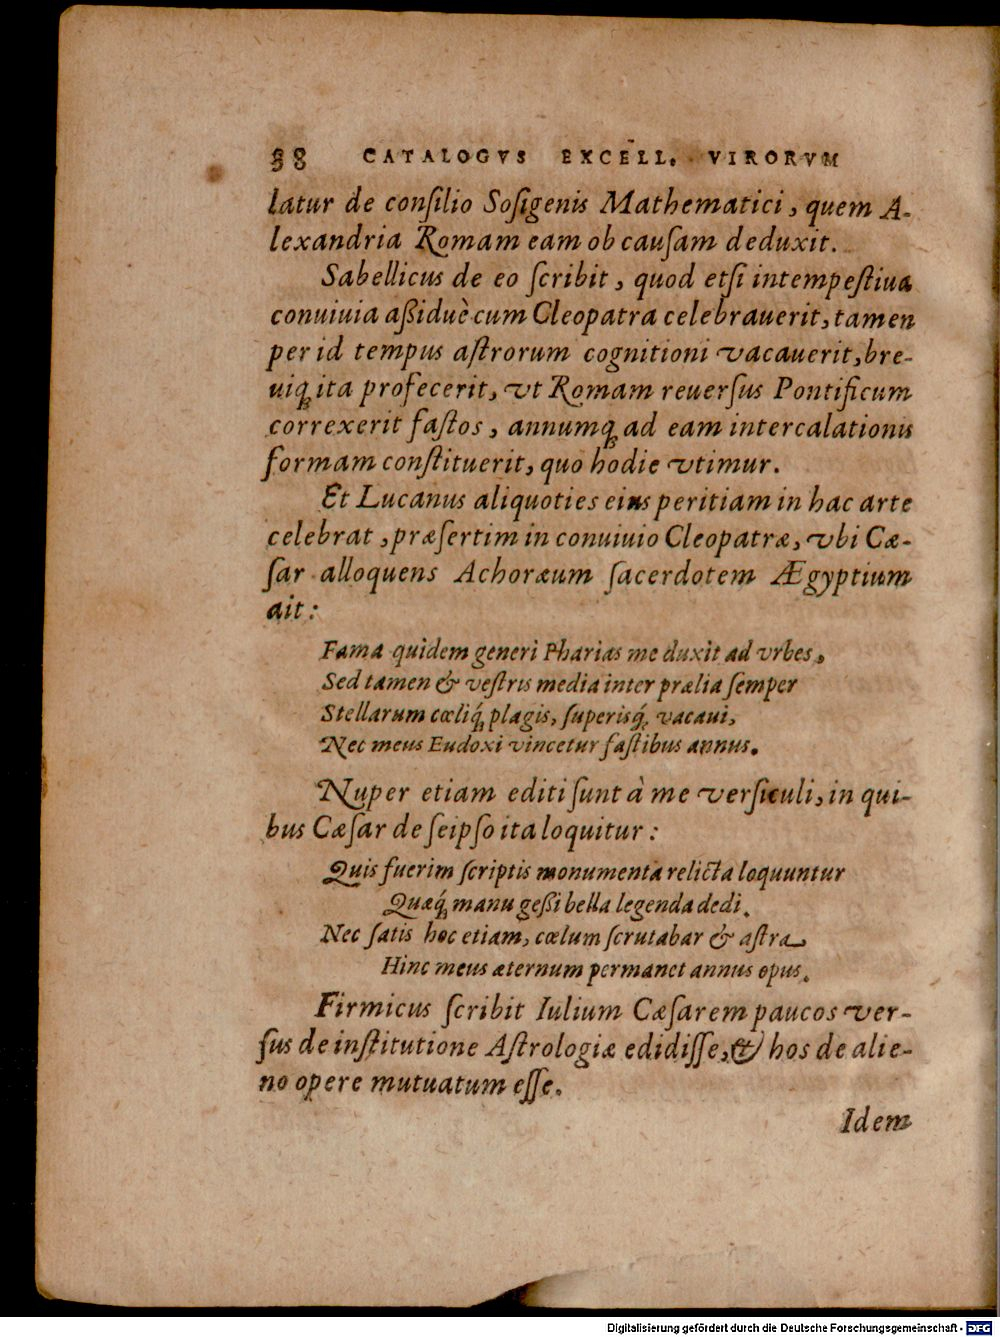 38 CATALOGVS EXCELL. VIRORVM
latur de conſilio Soſigenis Mathematici, quem A-
lexandria Romam eam ob cauſam deduxit.
Sabellicus de eo ſcribit, quod etſi intempeſtiua
conuiuia aßiduè cum Cleopatra celebrauerit, tamen
per id tempus aſtrorum cognitioni vacauerit, bre-
uiq́; ita profecerit, vt Romam reuerſus Pontificum
correxerit faſtos, annumq́; ad eam intercalationis
formam conſtituerit, quo hodie vtimur.
Et Lucanus aliquoties eius peritiam in hac arte
celebrat, præſertim in conuiuio Cleopatræ, vbi Cæ-
ſar alloquens Achoræum ſacerdotem Ægyptium
ait:
Fama quidem generi Pharias me duxit ad vrbes,
Sed tamen & veſtris media inter prælia ſemper
Stellarum cœliq́; plagis, ſuperisq́; vacaui,
Nec meus Eudoxi vincetur faſtibus annus.
Nuper etiam editi ſunt à me verſiculi, in qui-
bus Cæſar de ſeipſo ita loquitur:
Quis fuerim ſcriptis monumenta relicta loquuntur
Quæq́; manu geßi bella legenda dedi.
Nec ſatis hoc etiam, cœlum ſcrutabar & aſtra,
Hinc meus æternum permanet annus opus.
Firmicus ſcribit Iulium Cæſarem paucos ver-
ſus de inſtitutione Aſtrologiæ edidiſſe, & hos de alie-
no opere mutuatum eſſe.
Idem
Digitalisierung gefördert durch die Deutsche Forschungsgemeinschaft - DFG